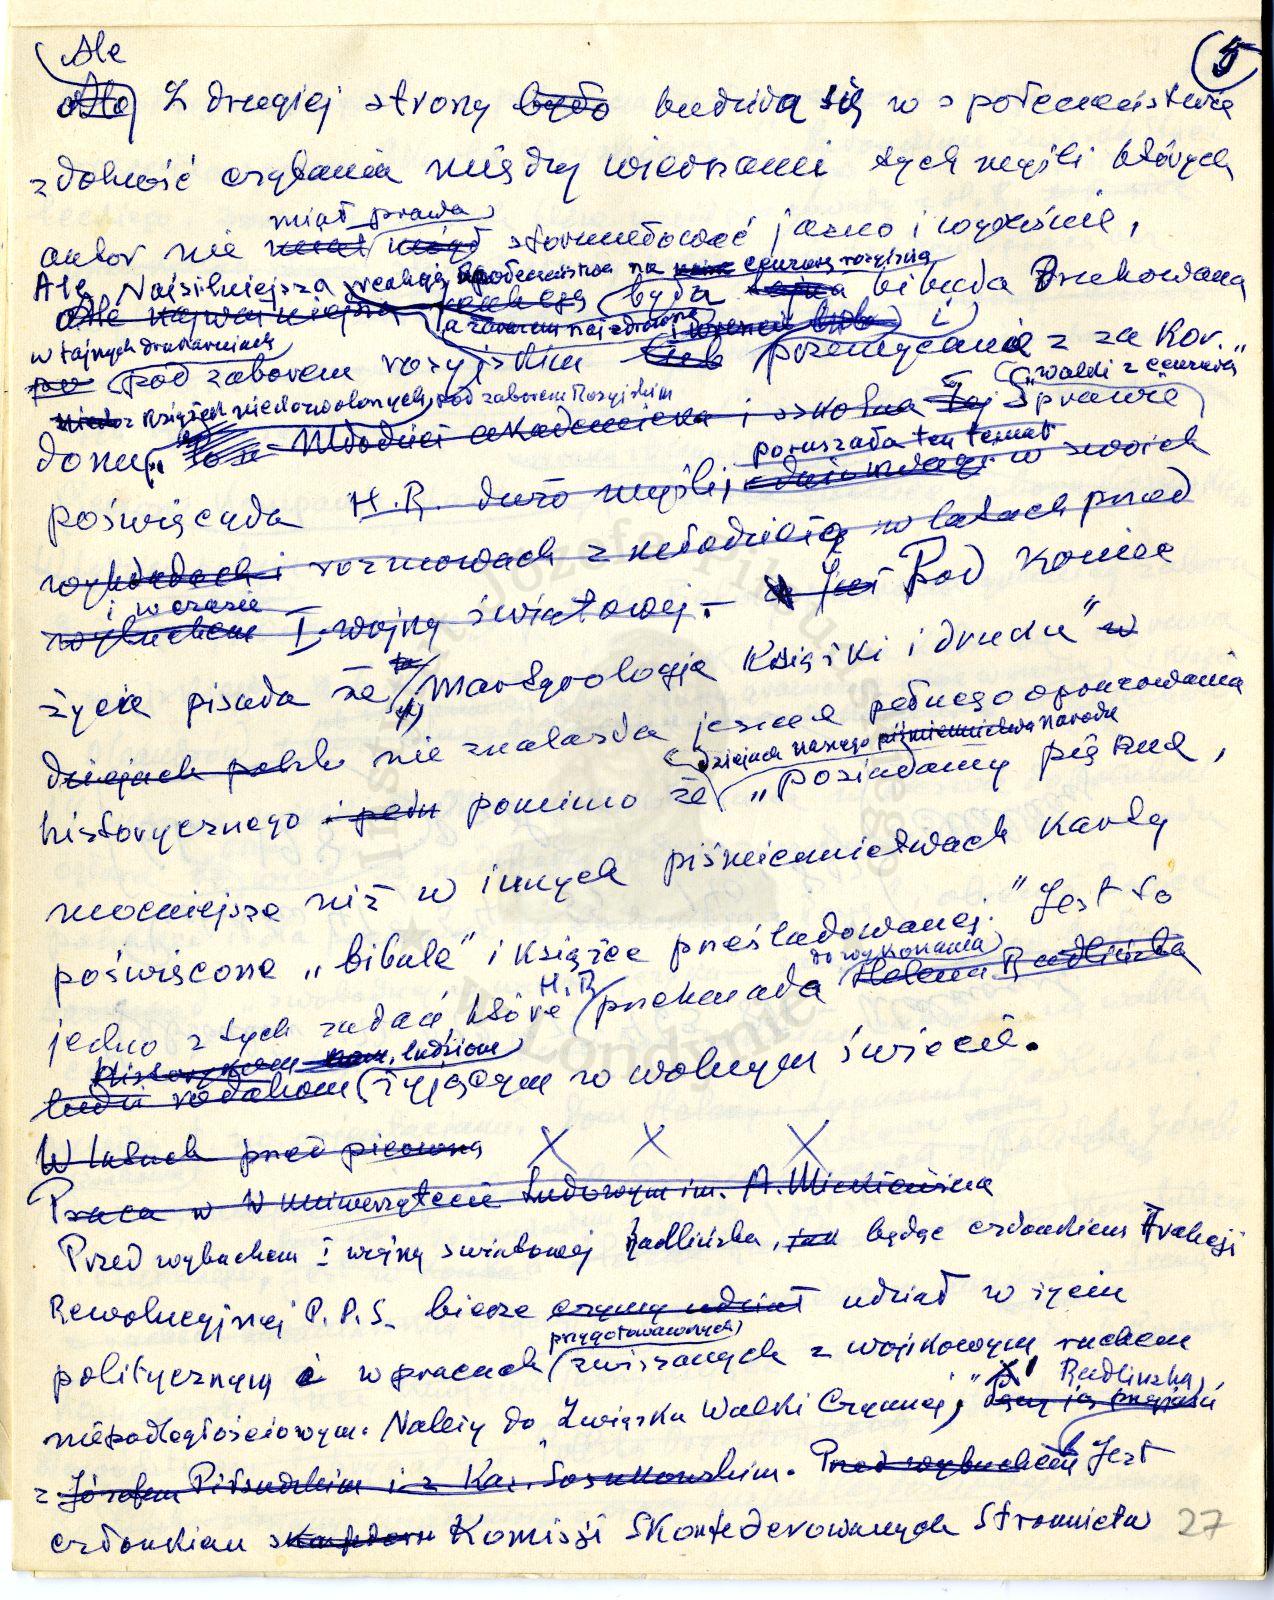 Ale
5
Ale Z drugiej strony było budziła się w społeczeństwie
zdolność czytania między wierszami tych myśli których
miał prawa
autor nie sformułować jasno i wyraźnie,
Ale Najsilniejszą reakcją społeczeństwa na cenzurę rosyjską
Ale najważniejszą reakcją była bibuła drukowana
a zarazem najzdrowszą i
w tajnych drukarniach
pod zaborem rosyjskim lub przemycana z za Kor.„
walki z cenzurą
z książek niedozwolonych, pod zaborem Rosyjskim
donu„ Młodzież akademicka i szkolna Tej Sprawie
poruszała ten temat
poświęcała H.R. dużo myśli, w swoich
wykładach i rozmowach z młodzieżą w latach przed
i w czasie
wybuchem I wojny światowej. – Jest Pod koniec
życia pisała że „Martyrologja Książki i druku” w
dziejach polsk nie znalazła jeszcze pełnego opracowania
dziejach naszego piśmiennictwa narodu
historycznego i peł pomimo że „posiadamy piękne,
mocniejsze niż w innych piśmiennictwach karty
poświęcone „bibule” i książce prześladowanej.” Jest to
do wykonania
jedno z tych zadań, które H.R. przekazała Helena Radlińska
Historykom nam, ludziom
ludzi rodakom żyjącym w wolnym świecie.
W latach przed pierwszą X X X
Praca w W Uniwersytecie Ludowym im. A. Mickiewicza
Przed wybuchem I wojny światowej Radlińska, tak będąc członkiem Frakcji
Rewolucyjnej P.P.S. bierze czynny udział udział w życiu
przygotowawczych
politycznym i w pracach związanych z wojskowym ruchem
niepodległościowym. Należy do „Związku Walki Czynnej,” Radlińska,
łączy ją przyjaźń
z Józefem Piłsudskim i z Kaz. Sosnkowskim. Przed wybuchem Jest
członkiem Komisji Skonfederowanych Stronnictw
27
Instytut Józefa Piłsudskiego
w Londynie